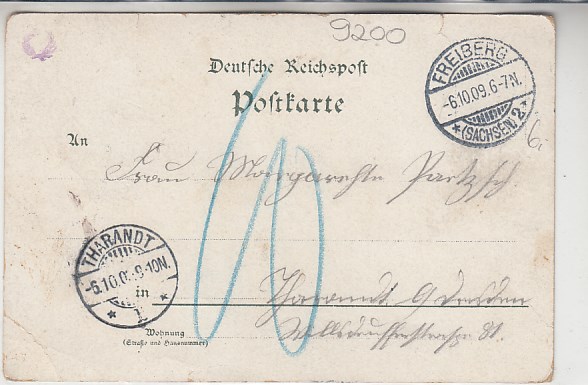 9200
Deutsche Reichspost
Postkarte
FREIBERG
-6.10.09.6-7N.
(SACHSEN) 2
6.
An
Frau Margarethe Partzsch
10
THARANDT
-6.10.0 8-10N.
in
Tharandt Dresden
Wohnung
(Straße und Hausnummer)
Wilsdrufferstraße 81.